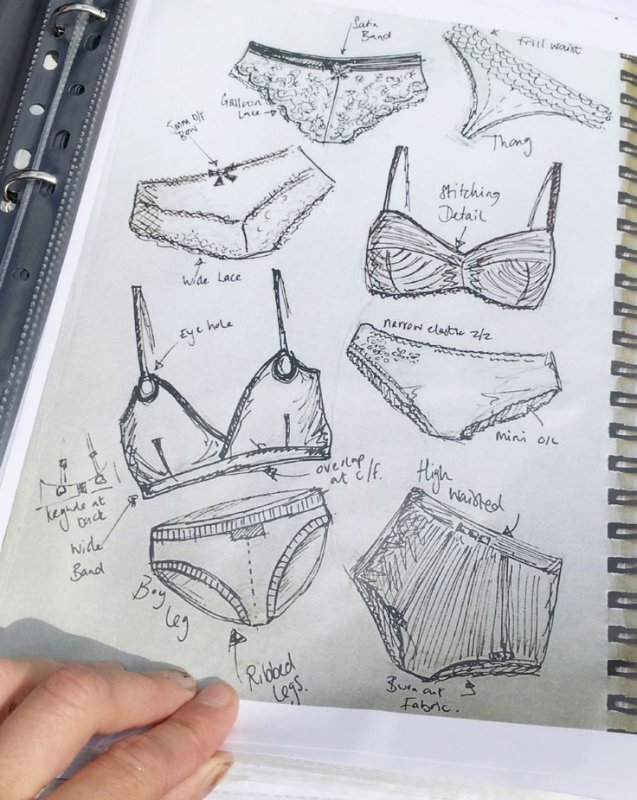 Satin
Band
Frill Waist
Galloon
Lace
Thong
5mm
Bow
Stitching
Detail
Wide Lace
Eye hole
narrow elastic 2/2
mini o/l
overlap
at c/f.
High
Waisted
Keyhole at
back
Wide
Band
Boy
Leg
Ribbed
Legs.
Burn out
Fabric.